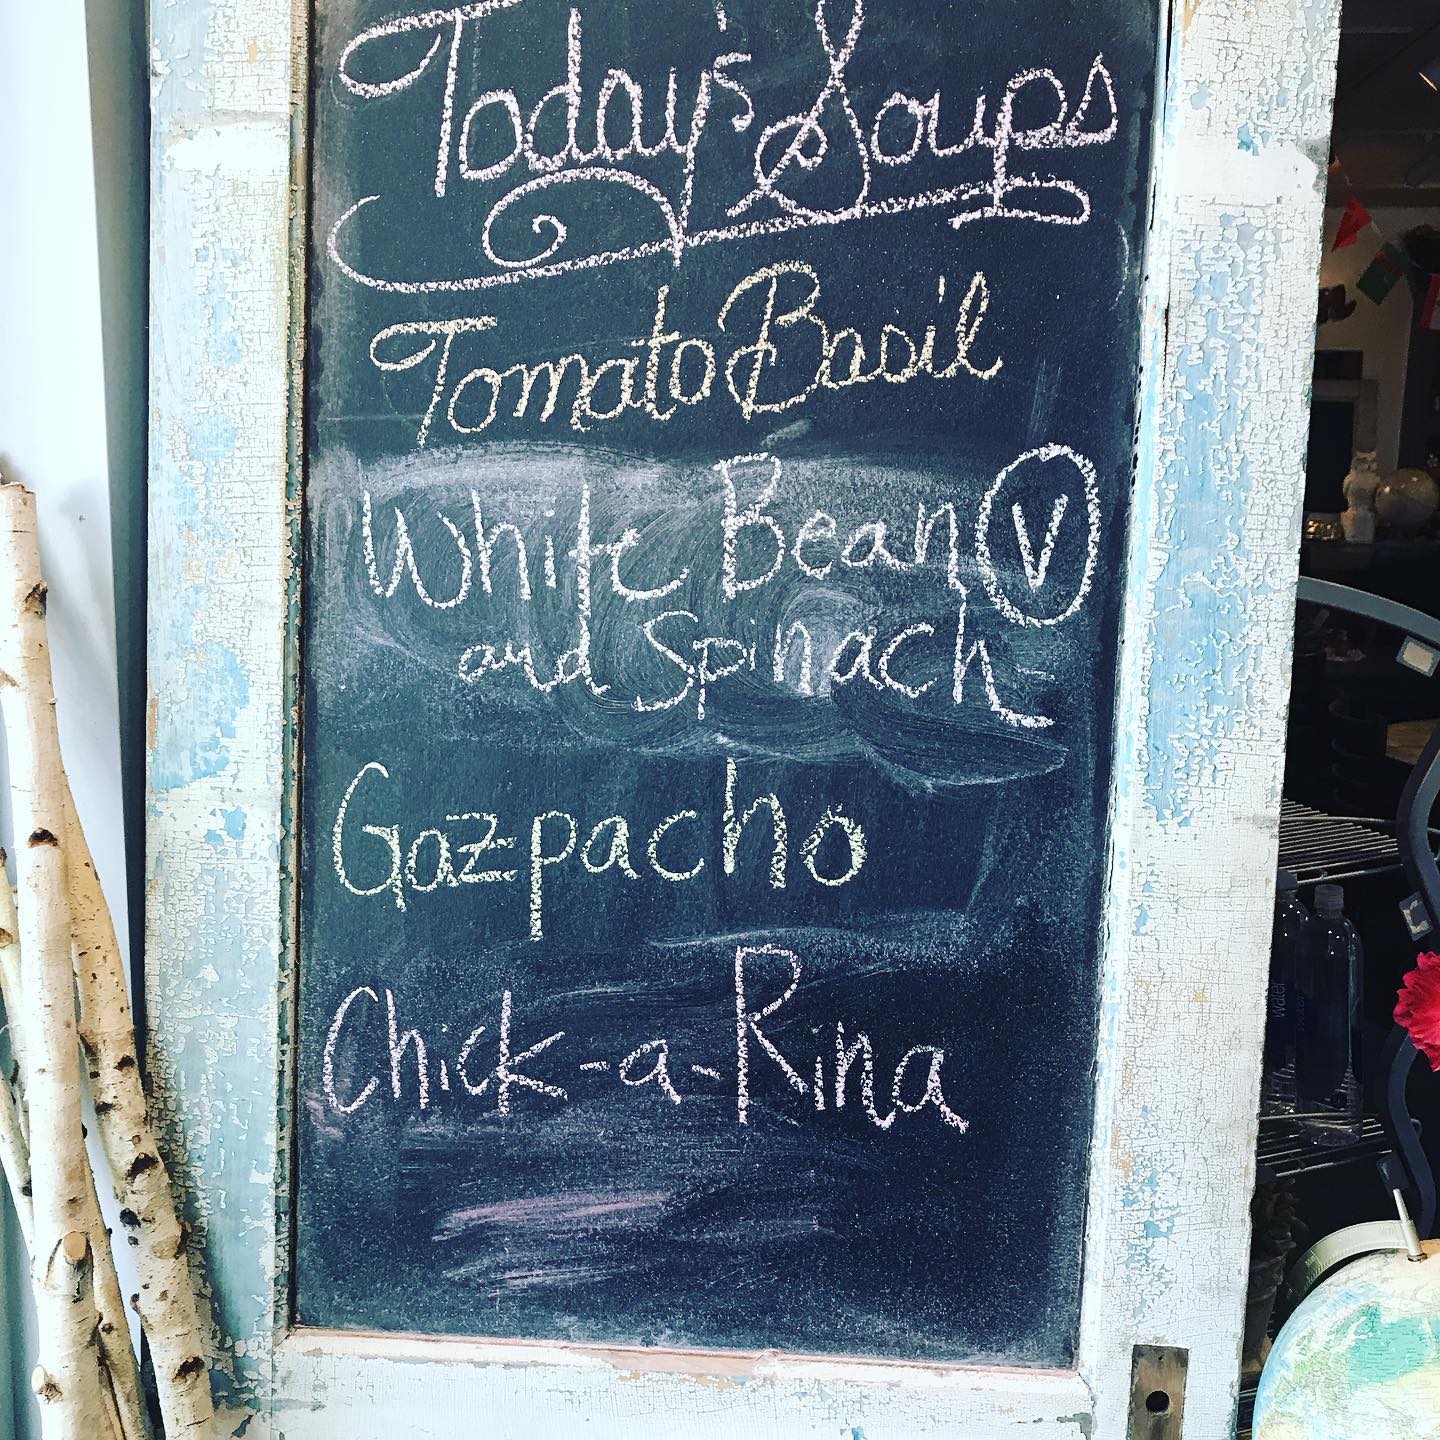 Today's Soups
Tomato Basil
White Bean V
and Spinach
Gazpacho
Chick-a-Rina
Water